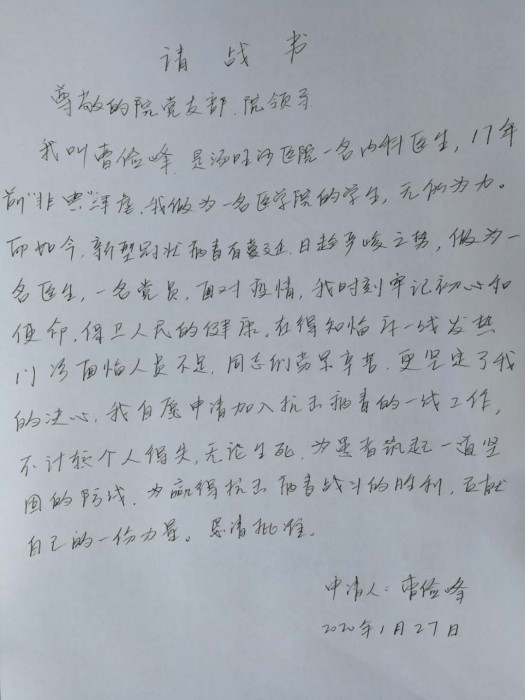 请战书
尊敬的院党支部、院领导
我叫曹俭峰，是汤旺河医院一名内科医生，17年
前“非典”肆虐，我做为一名医学院的学生，无能为力。
而如今，新型冠状病毒有蔓延、日趋严峻之势，做为一
名医生，一名党员，面对疫情，我时刻牢记初心和
使命，保卫人民的健康，在得知临床一线发热
门诊面临人员不足，同志们劳累辛苦，更坚定了我
的决心，我自愿申请加入抗击病毒的一线工作，
不计较个人得失，无论生死，为患者筑起一道坚
固的防线，为赢得抗击病毒战斗的胜利，贡献
自己的一份力量。恳请批准。
申请人：曹俭峰
2020年1月27日